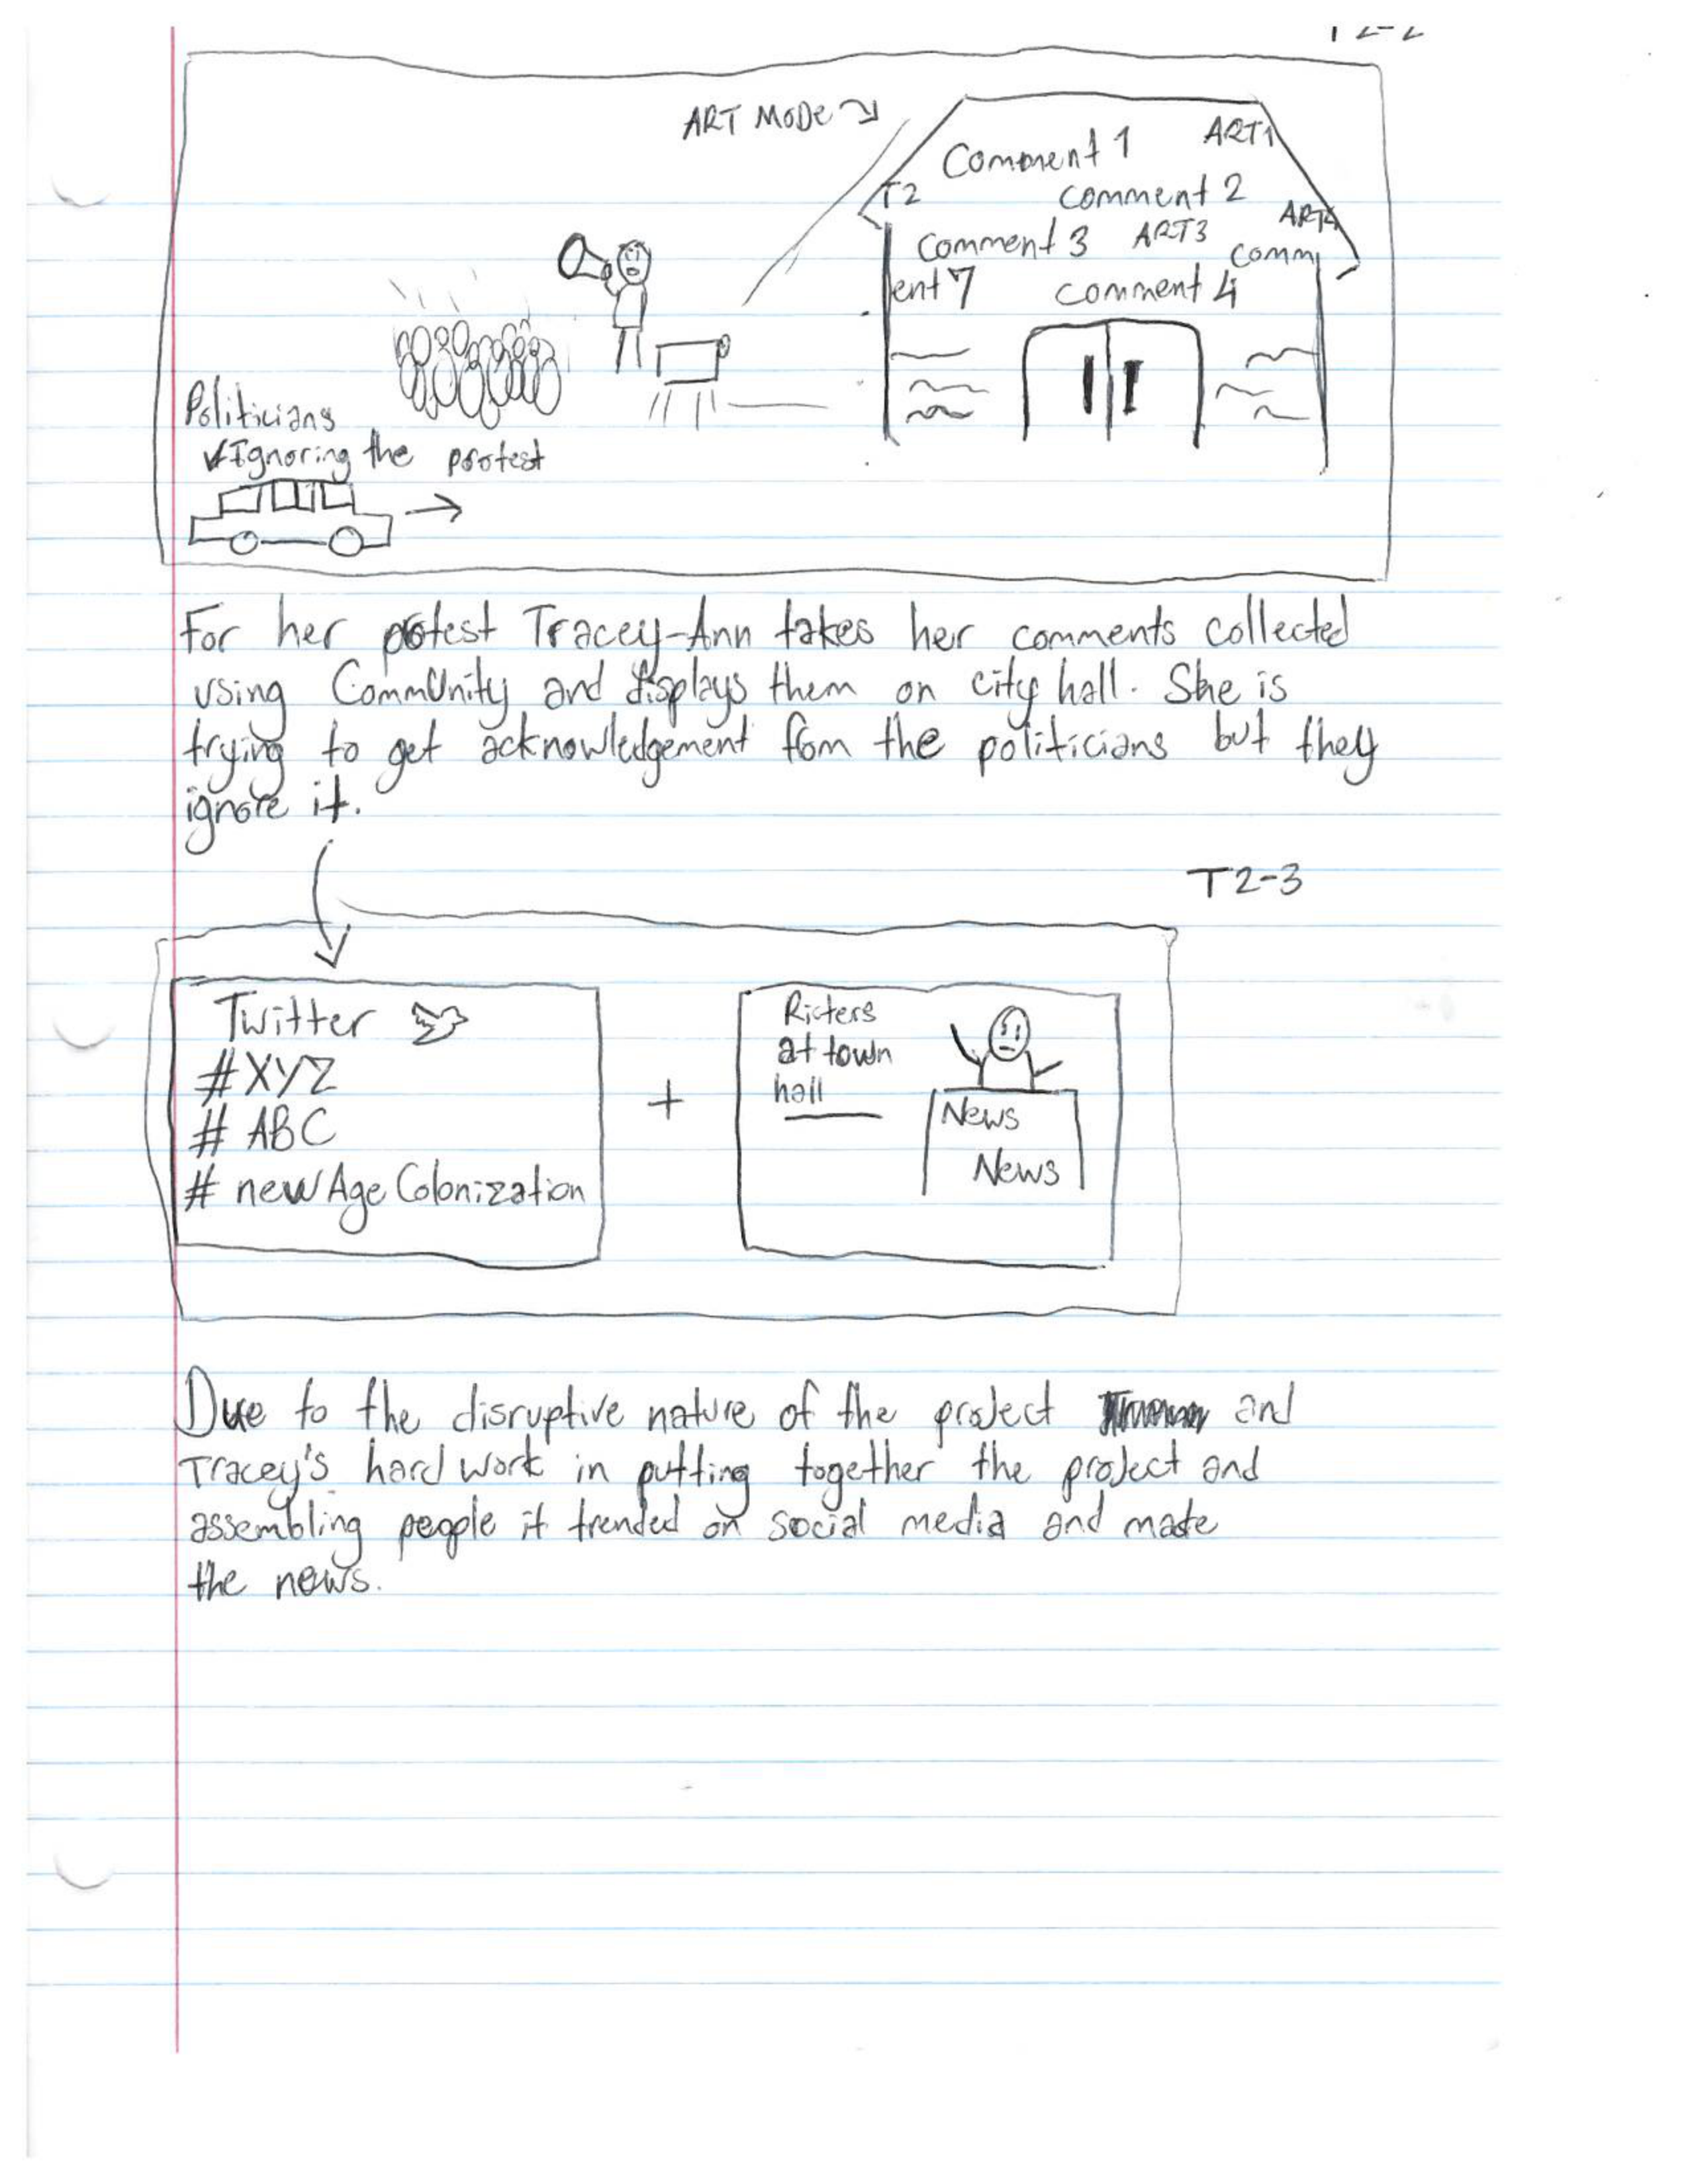 ART MODE
Comment 1
ART1
T2
Comment 2
ART4
Comment 3
ART3
Comm
ent 7
Comment 4
Politicians
Ignoring the protest
For her protest Tracey-Ann takes her comments collected
using CommUnity and displays them on city hall. She is
trying to get acknowledgement from the politicians but they
ignore it.
T2-3
Twitter
#XYZ
# ABC
# newAgeColonization
+
Rioters
at town
hall
News
News
Due to the disruptive nature of the project and
Tracey's hard work in putting together the project and
assembling people it trended on social media and made
the news.